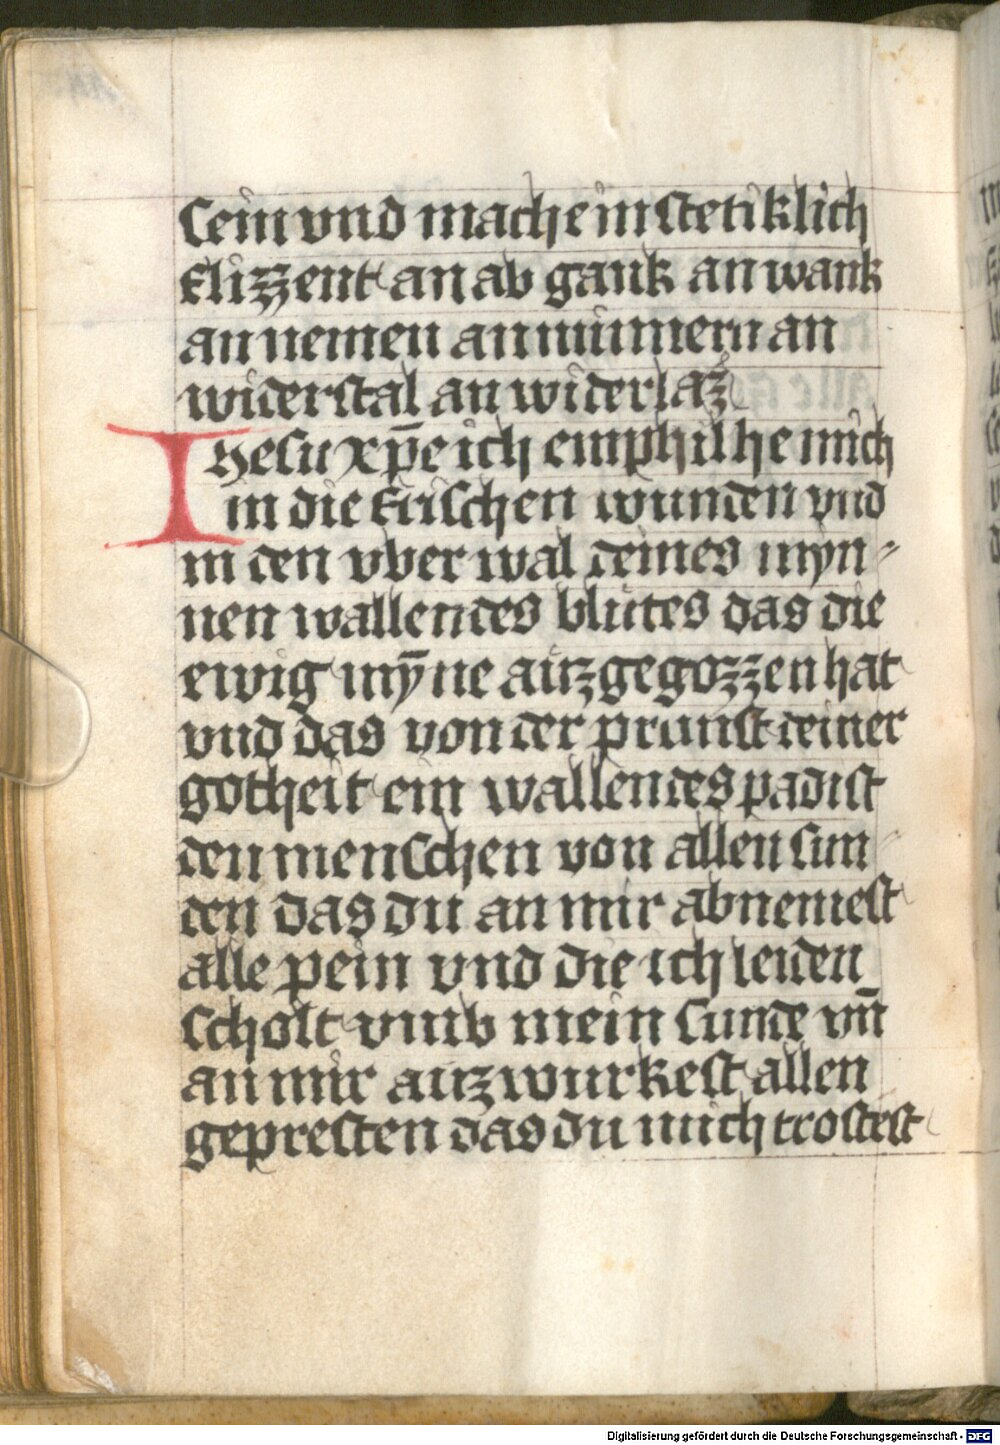 sein vnd mach ein stetiklich
flizzent an ab gank an wank
an nemen an minnern an
widerstal an widerlaz
Ihesu xp̄e ich emphilhe mich
in die frischen wunden vnd
in den vber wal deines myn-
nen wallendes blutes das die
ewig mȳne auzgegozzen hat
vnd das von der prunst deiner
gotheit ein wallendes pad ist
den menschen von allen sun-
den das du an mir abnemest
alle pein vnd die ich leiden
scholt vmb mein sunde vn̄
an mir auzwurkest allen
gepresten das du mich trostest
Digitalisierung gefördert durch die Deutsche Forschungsgemeinschaft - DFG